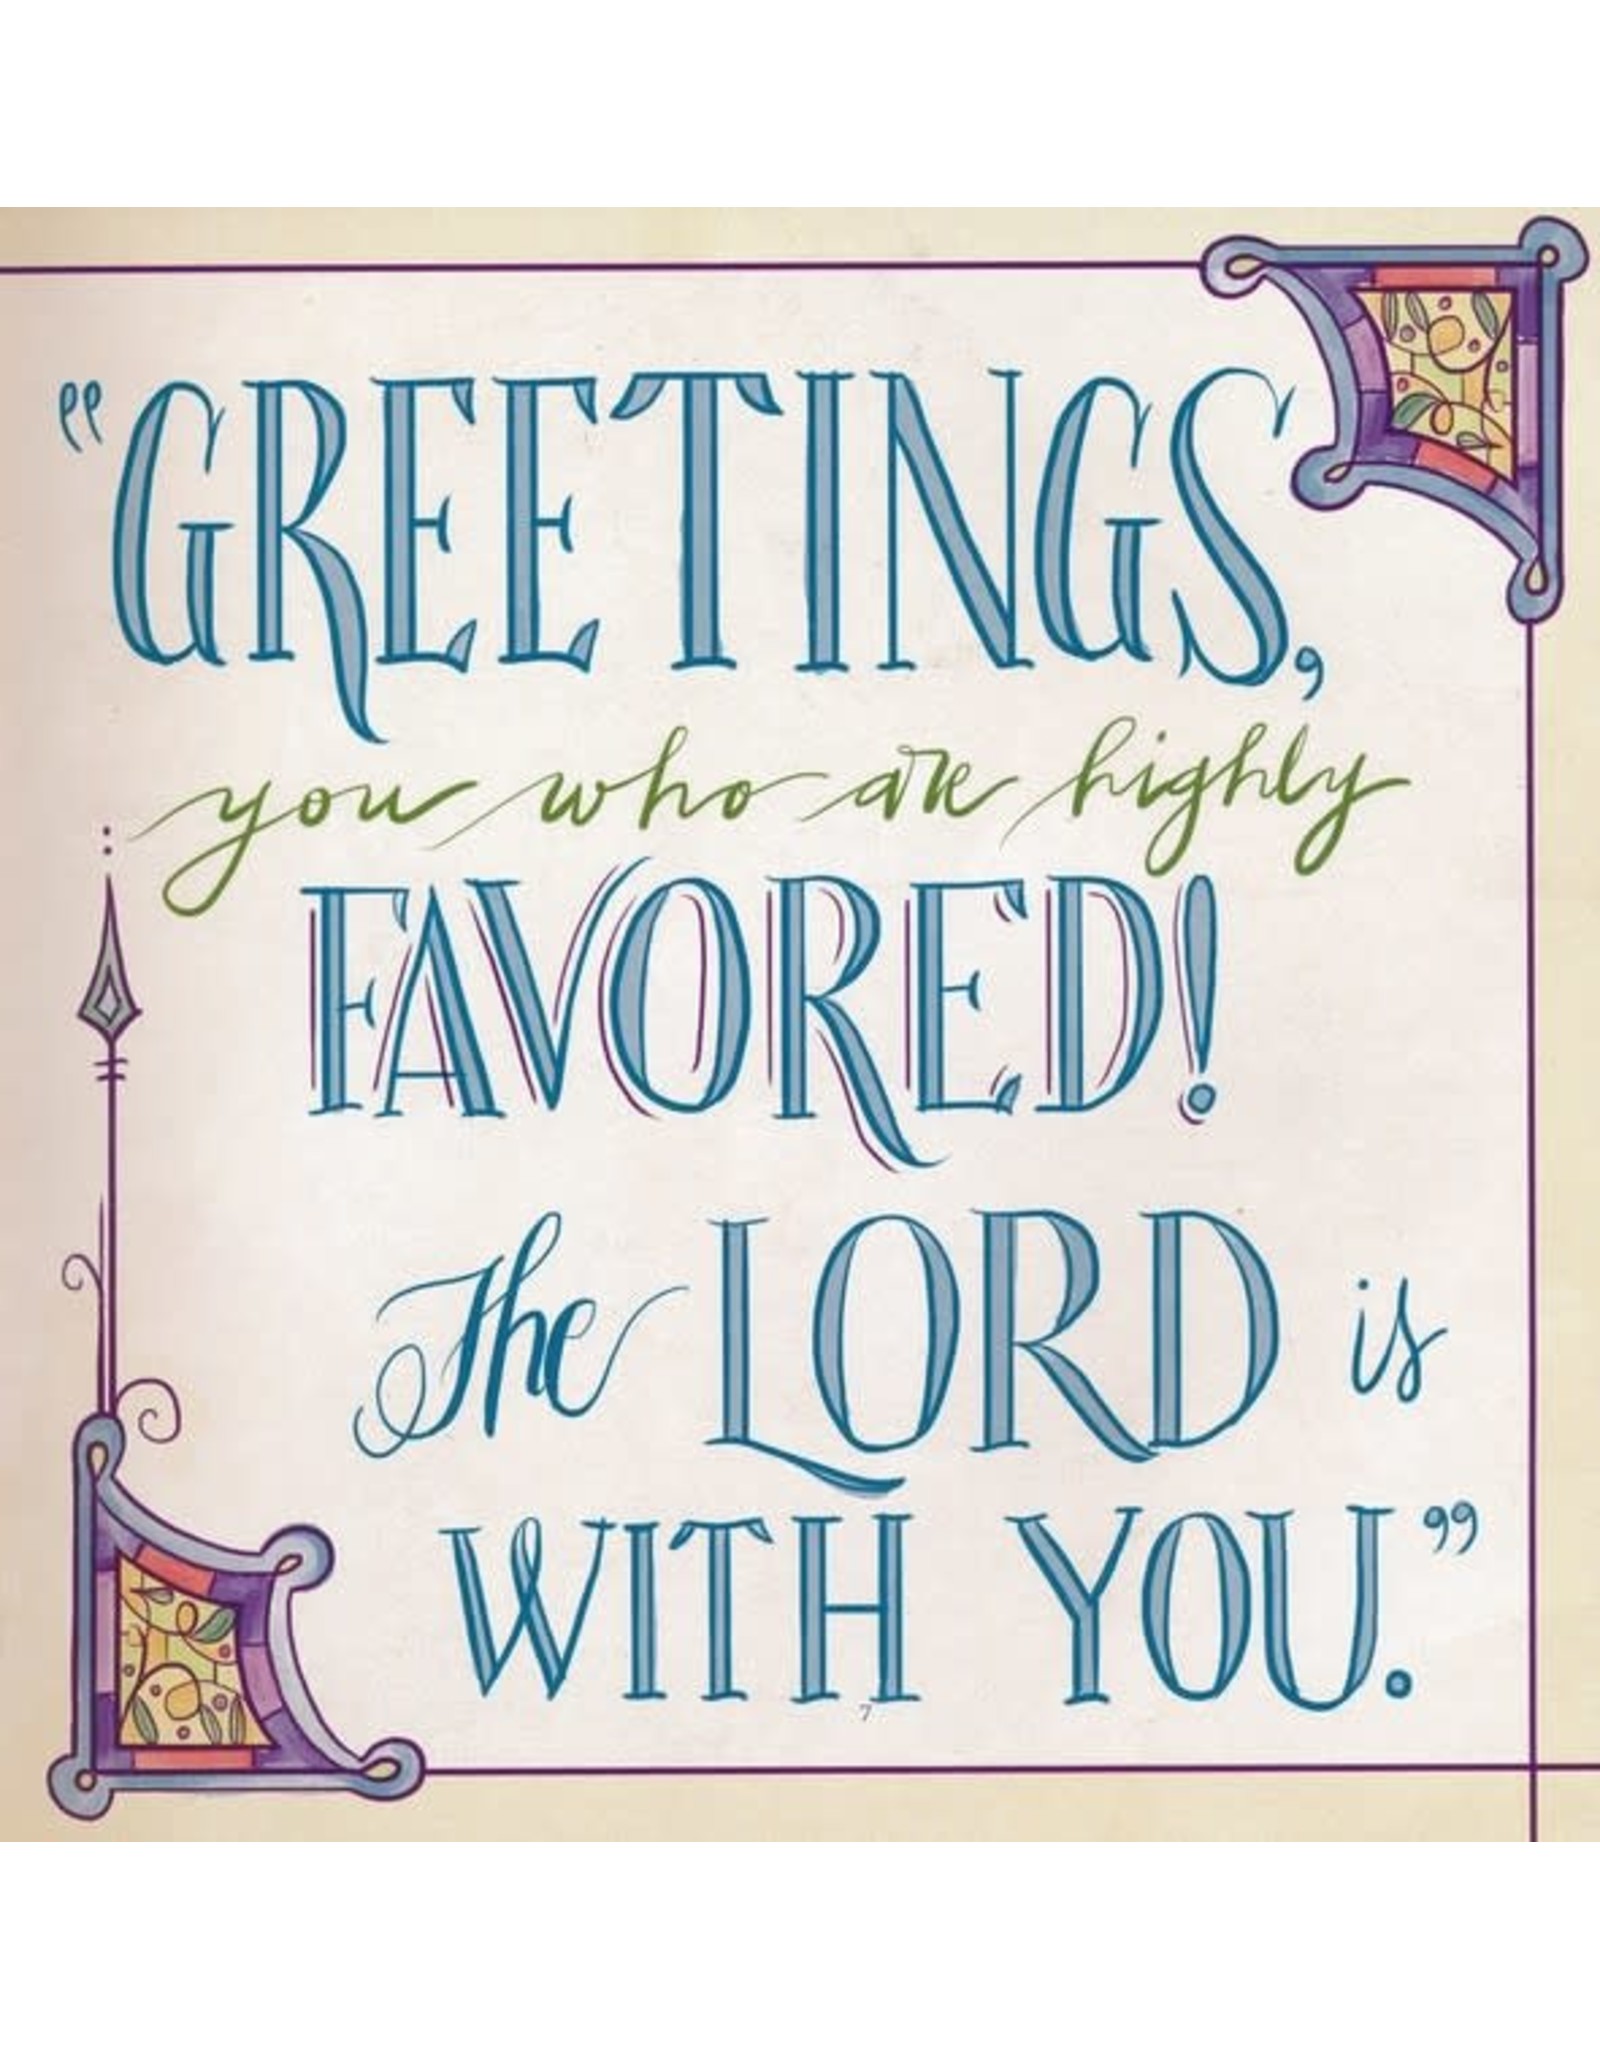 “GREETINGS,
you who are highly
FAVORED!
The LORD is
WITH YOU.”
7